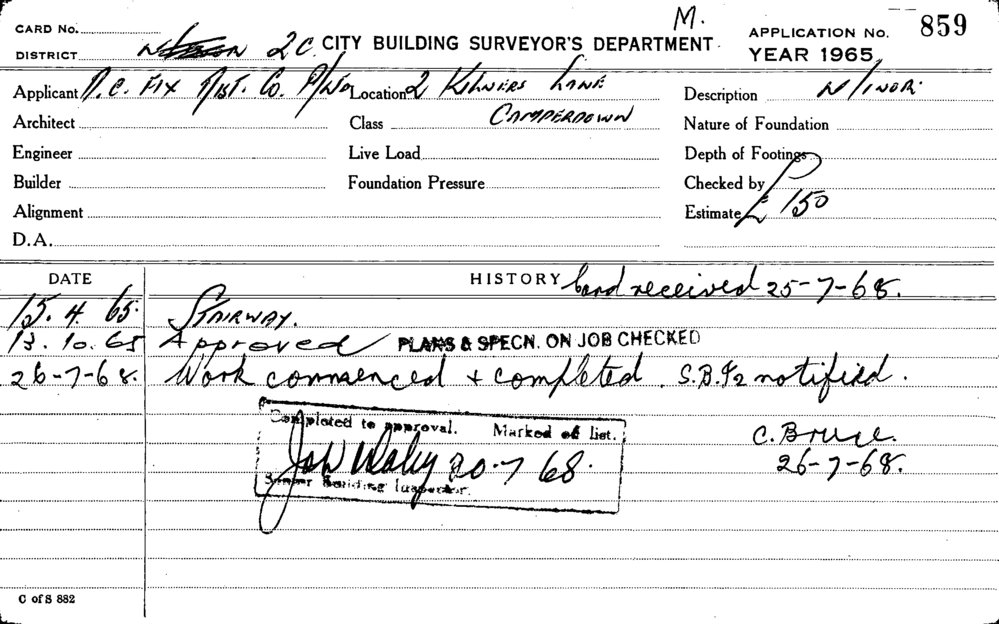 M.
CARD No.
DISTRICT 2C. CITY BUILDING SURVEYOR'S DEPARTMENT. APPLICATION No. 859
YEAR 1965
Applicant D.C. FIX DIST. Co. P/LTD Location 2 KILNERS LANE Description MINOR.
Architect Class CAMPERDOWN Nature of Foundation
Engineer Live Load Depth of Footings
Builder Foundation Pressure Checked by
Alignment Estimate £150
D.A.
DATE HISTORY Card received 25-7-68.
15. 4. 65. STAIRWAY.
13. 10. 65 Approved PLANS & SPECN. ON JOB CHECKED
26-7-68. Work commenced + completed. notified.
Completed to approval. Marked off list.
C. Bruce.
26-7-68.
Senior Building Inspector.
C of S 882